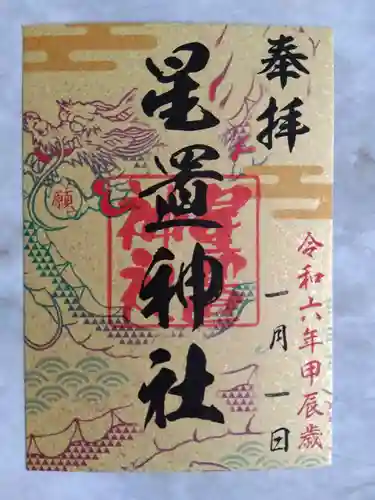 奉拝
星置神社
星置神社
願
令和六年甲辰歳
一月一日